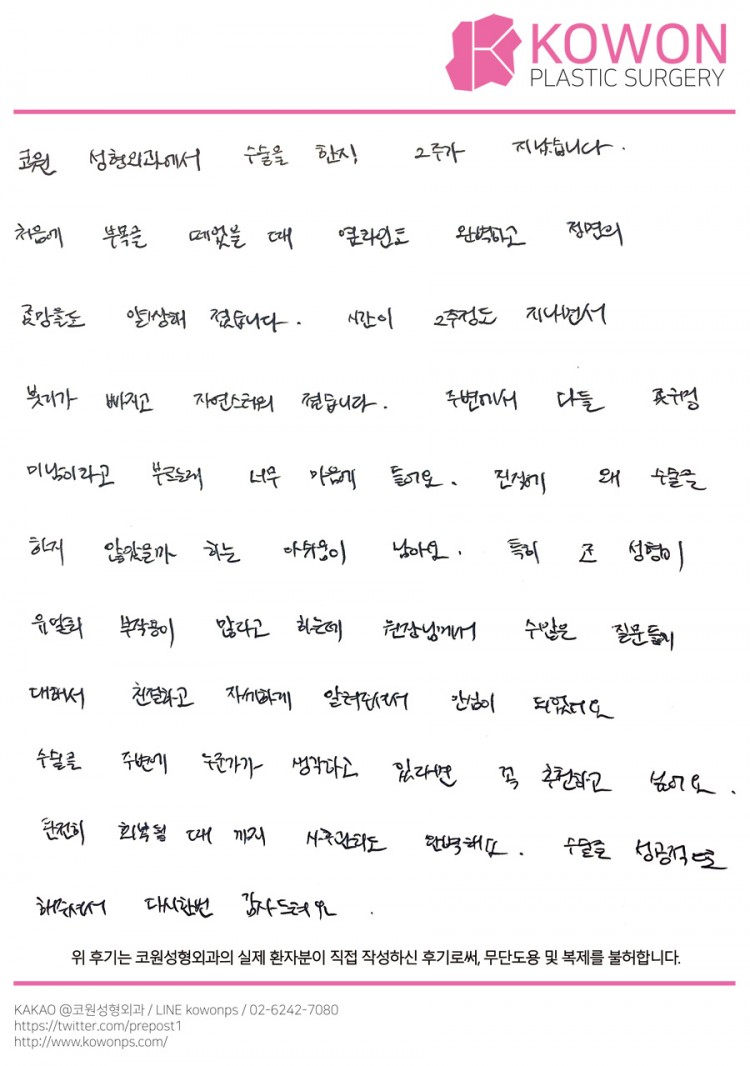 KOWON
PLASTIC SURGERY
코원 성형외과에서 수술을 한지 2주가 지났습니다.
처음에 부목을 떼었을 때 옆라인도 완벽하고 정면의
콧망울도 알상해 졌습니다. 시간이 2주정도 지나면서
붓기가 빠지고 자연스러워 졌습니다. 주변에서 다들 콧구멍
미남이라고 부르는데 너무 마음에 들어요. 진작에 왜 수술을
하지 않았을까 하는 아쉬움이 남아요. 특히 코 성형이
유일하 부작용이 많다고 하는데 원장님께서 수많은 질문들에
대해서 친절하고 자세하게 알려주셔서 안심이 되었어요
수술을 주변에 누군가가 생각하고 있다면 꼭 추천하고 싶어요.
완전히 회복될 때 까지 사후관리도 완벽해요. 수술을 성공적으로
해주셔서 다시한번 감사드려요.
위 후기는 코원성형외과의 실제 환자분이 직접 작성하신 후기로써, 무단도용 및 복제를 불허합니다.
KAKAO @코원성형외과 / LINE kowonps / 02-6242-7080
https://twitter.com/prepost1
http://www.kowonps.com/